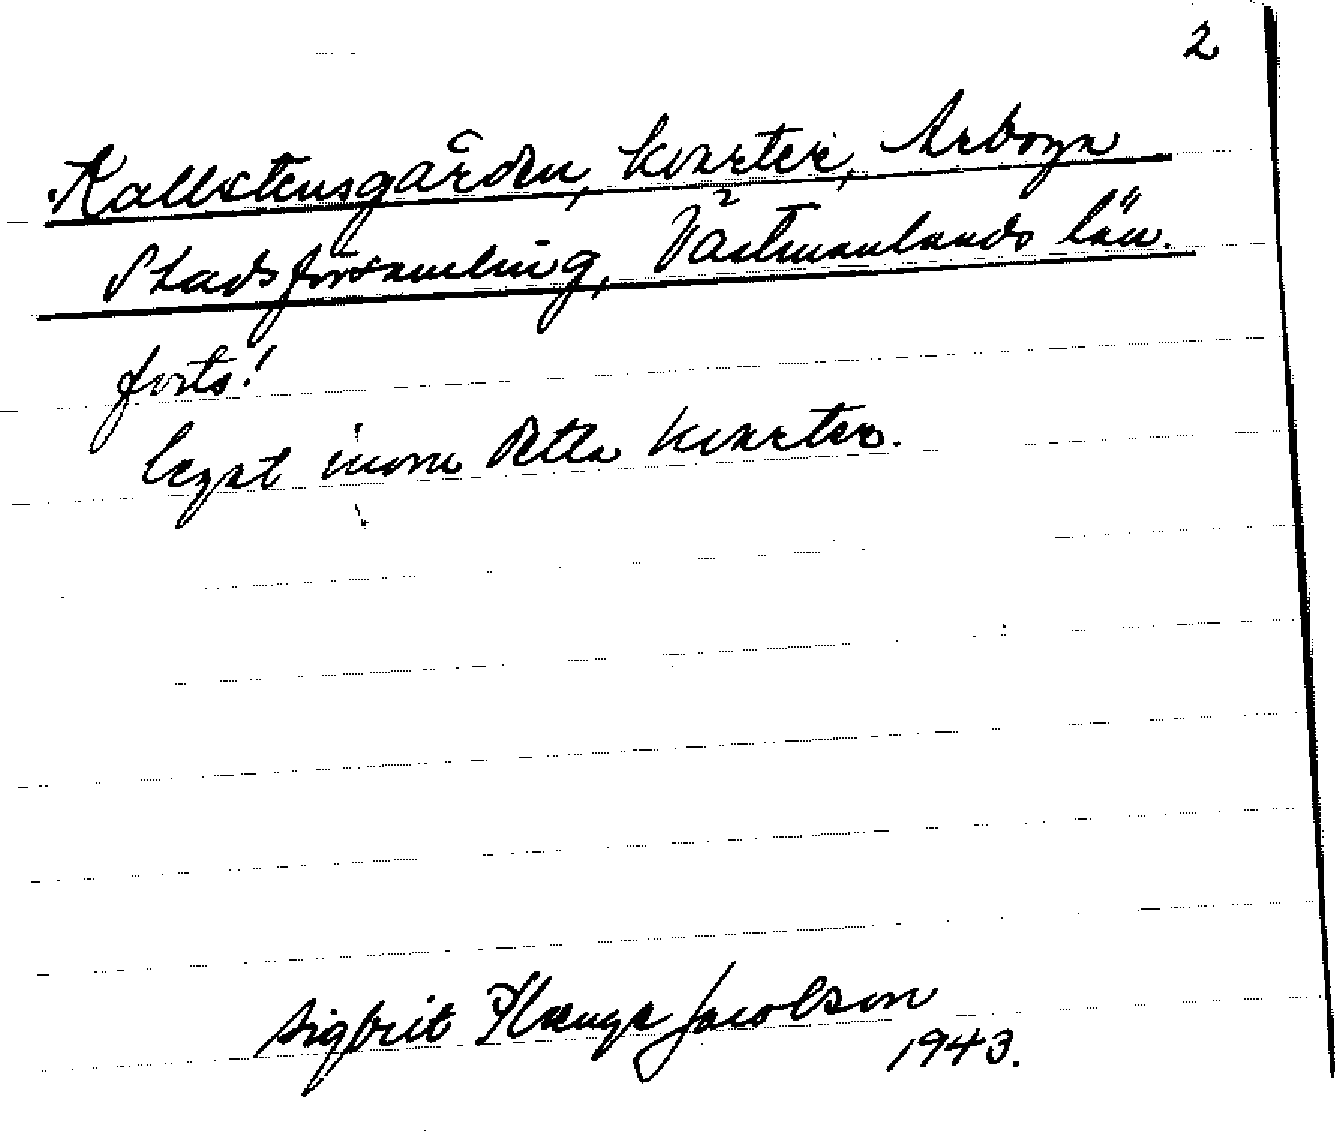 2
Kallstensgården, kvarter, Arboga
Stadsförsamling, Västmanlands län.
forts!
legat inom detta kvarter.
Sigbrit Plænge Jacobson
1943.